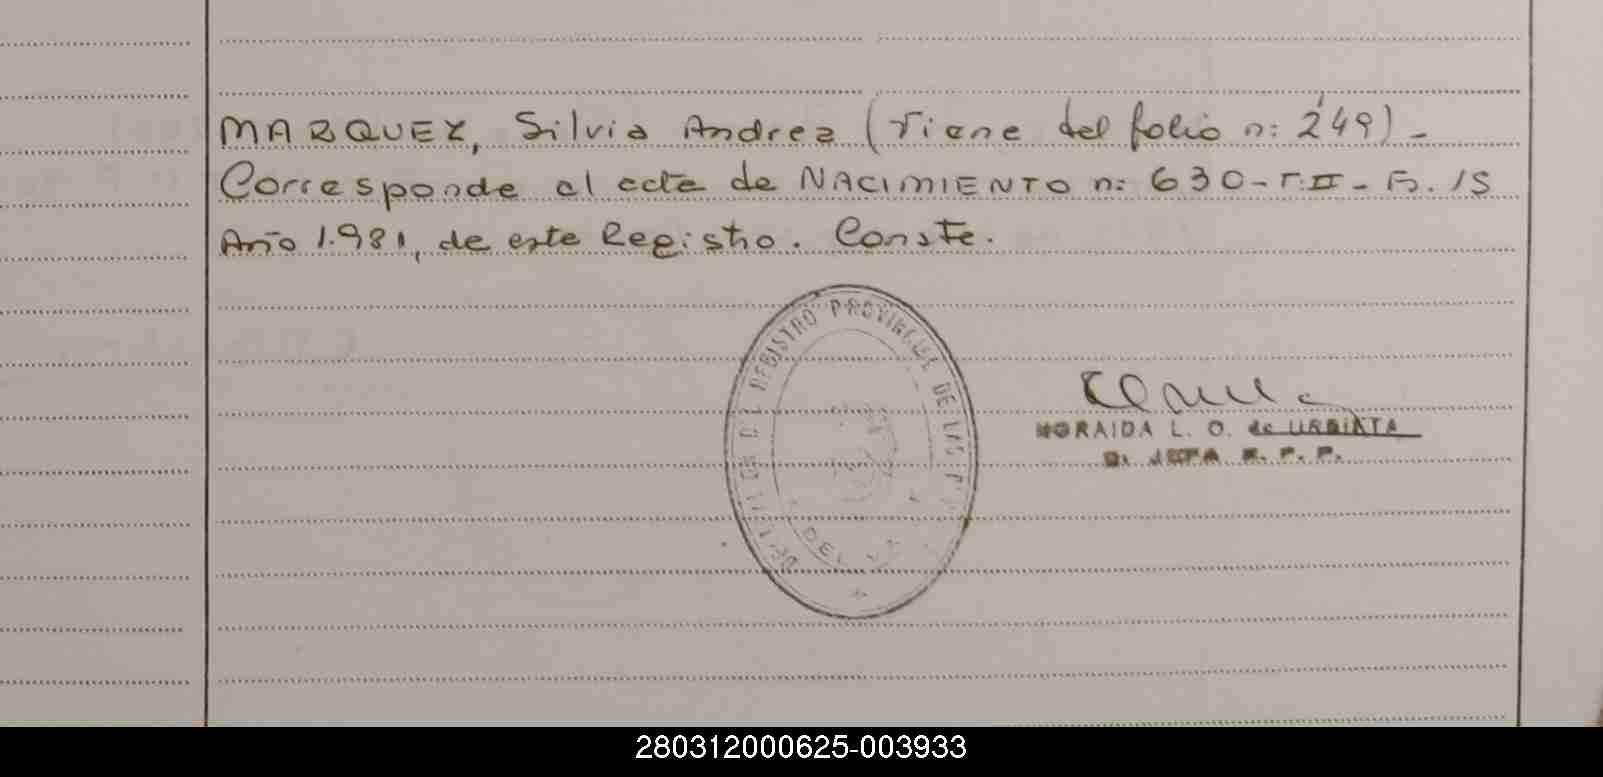 MARQUEZ, Silvia Andrea (Viene del folio n: 249) -
Corresponde al acta de NACIMIENTO n: 630 - T. II - F. 15
Año 1.981, de este Registro. Conste.
REGISTRO PROVINCIAL DE LAS
DEL
NORAIDA L. O. de URBINTA
JEFA R. P. P.
280312000625-003933